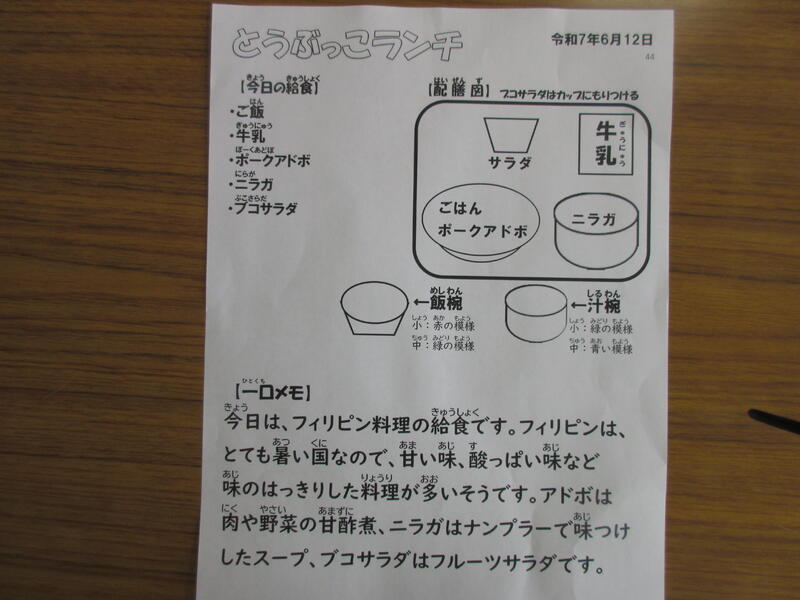 とうぶっこランチ
令和7年6月12日
44
【今日の給食】
・ご飯
・牛乳
・ポークアドボ
・ニラガ
・ブコサラダ
【配膳図】 ブコサラダはカップにもりつける
サラダ
牛乳
ぎゅうにゅう
ごはん
ポークアドボ
ニラガ
←飯椀
小：赤の模様
中：緑の模様
←汁椀
小：緑の模様
中：青い模様
【一口メモ】
今日は、フィリピン料理の給食です。フィリピンは、
とても暑い国なので、甘い味、酸っぱい味など
味のはっきりした料理が多いそうです。アドボは
肉や野菜の甘酢煮、ニラガはナンプラーで味つけ
したスープ、ブコサラダはフルーツサラダです。